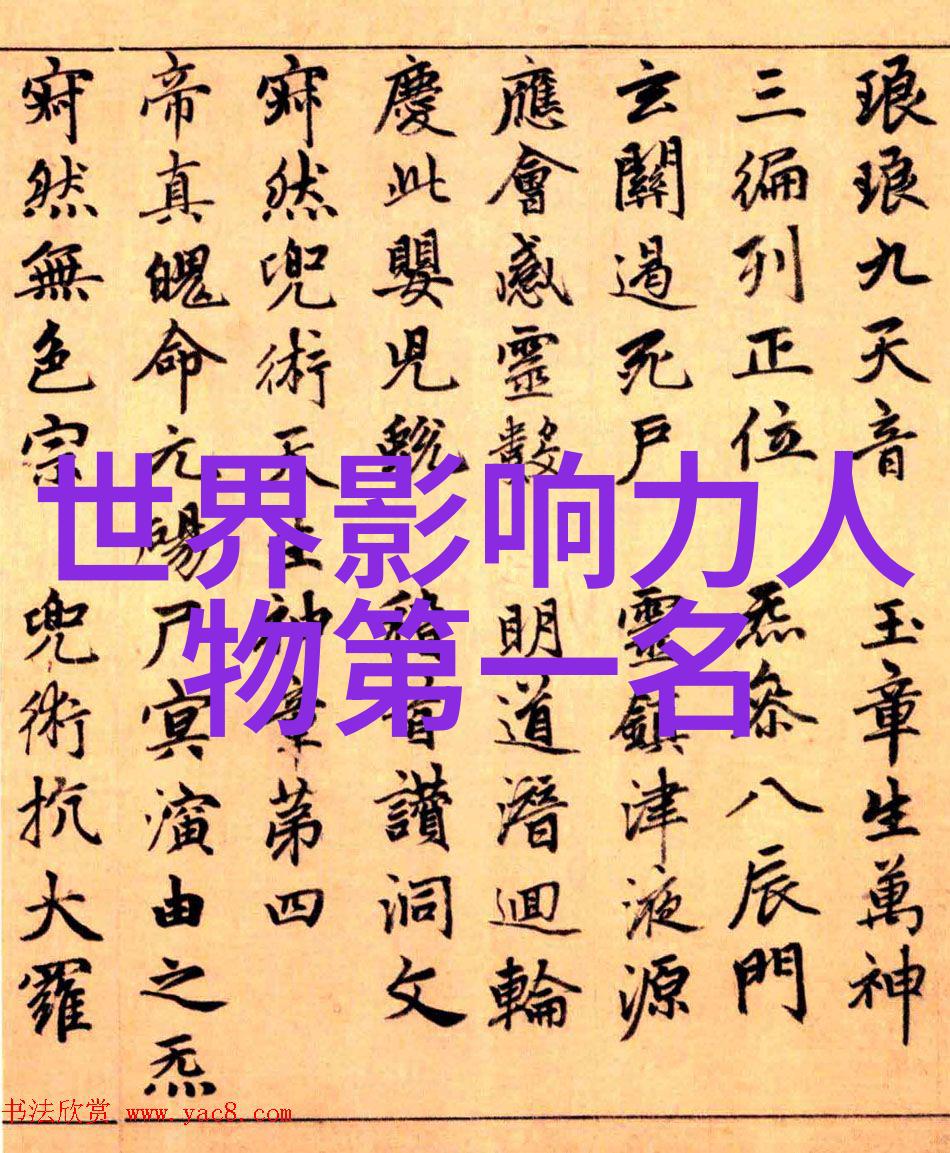 琅琅九天音 玉章生萬神
三徧列正位 炁參八辰門
玄關過死戶 靈鎮津液源
應會感靈數 明道潛迴輪
慶此嬰兒 首讚洞文
寂然兜術天王神章第四
帝真魄命元陽尸冥演由之炁
寂然無色宗 兜術抗大羅
世界影响力人
物第一名
书法欣赏 www.yac8.com